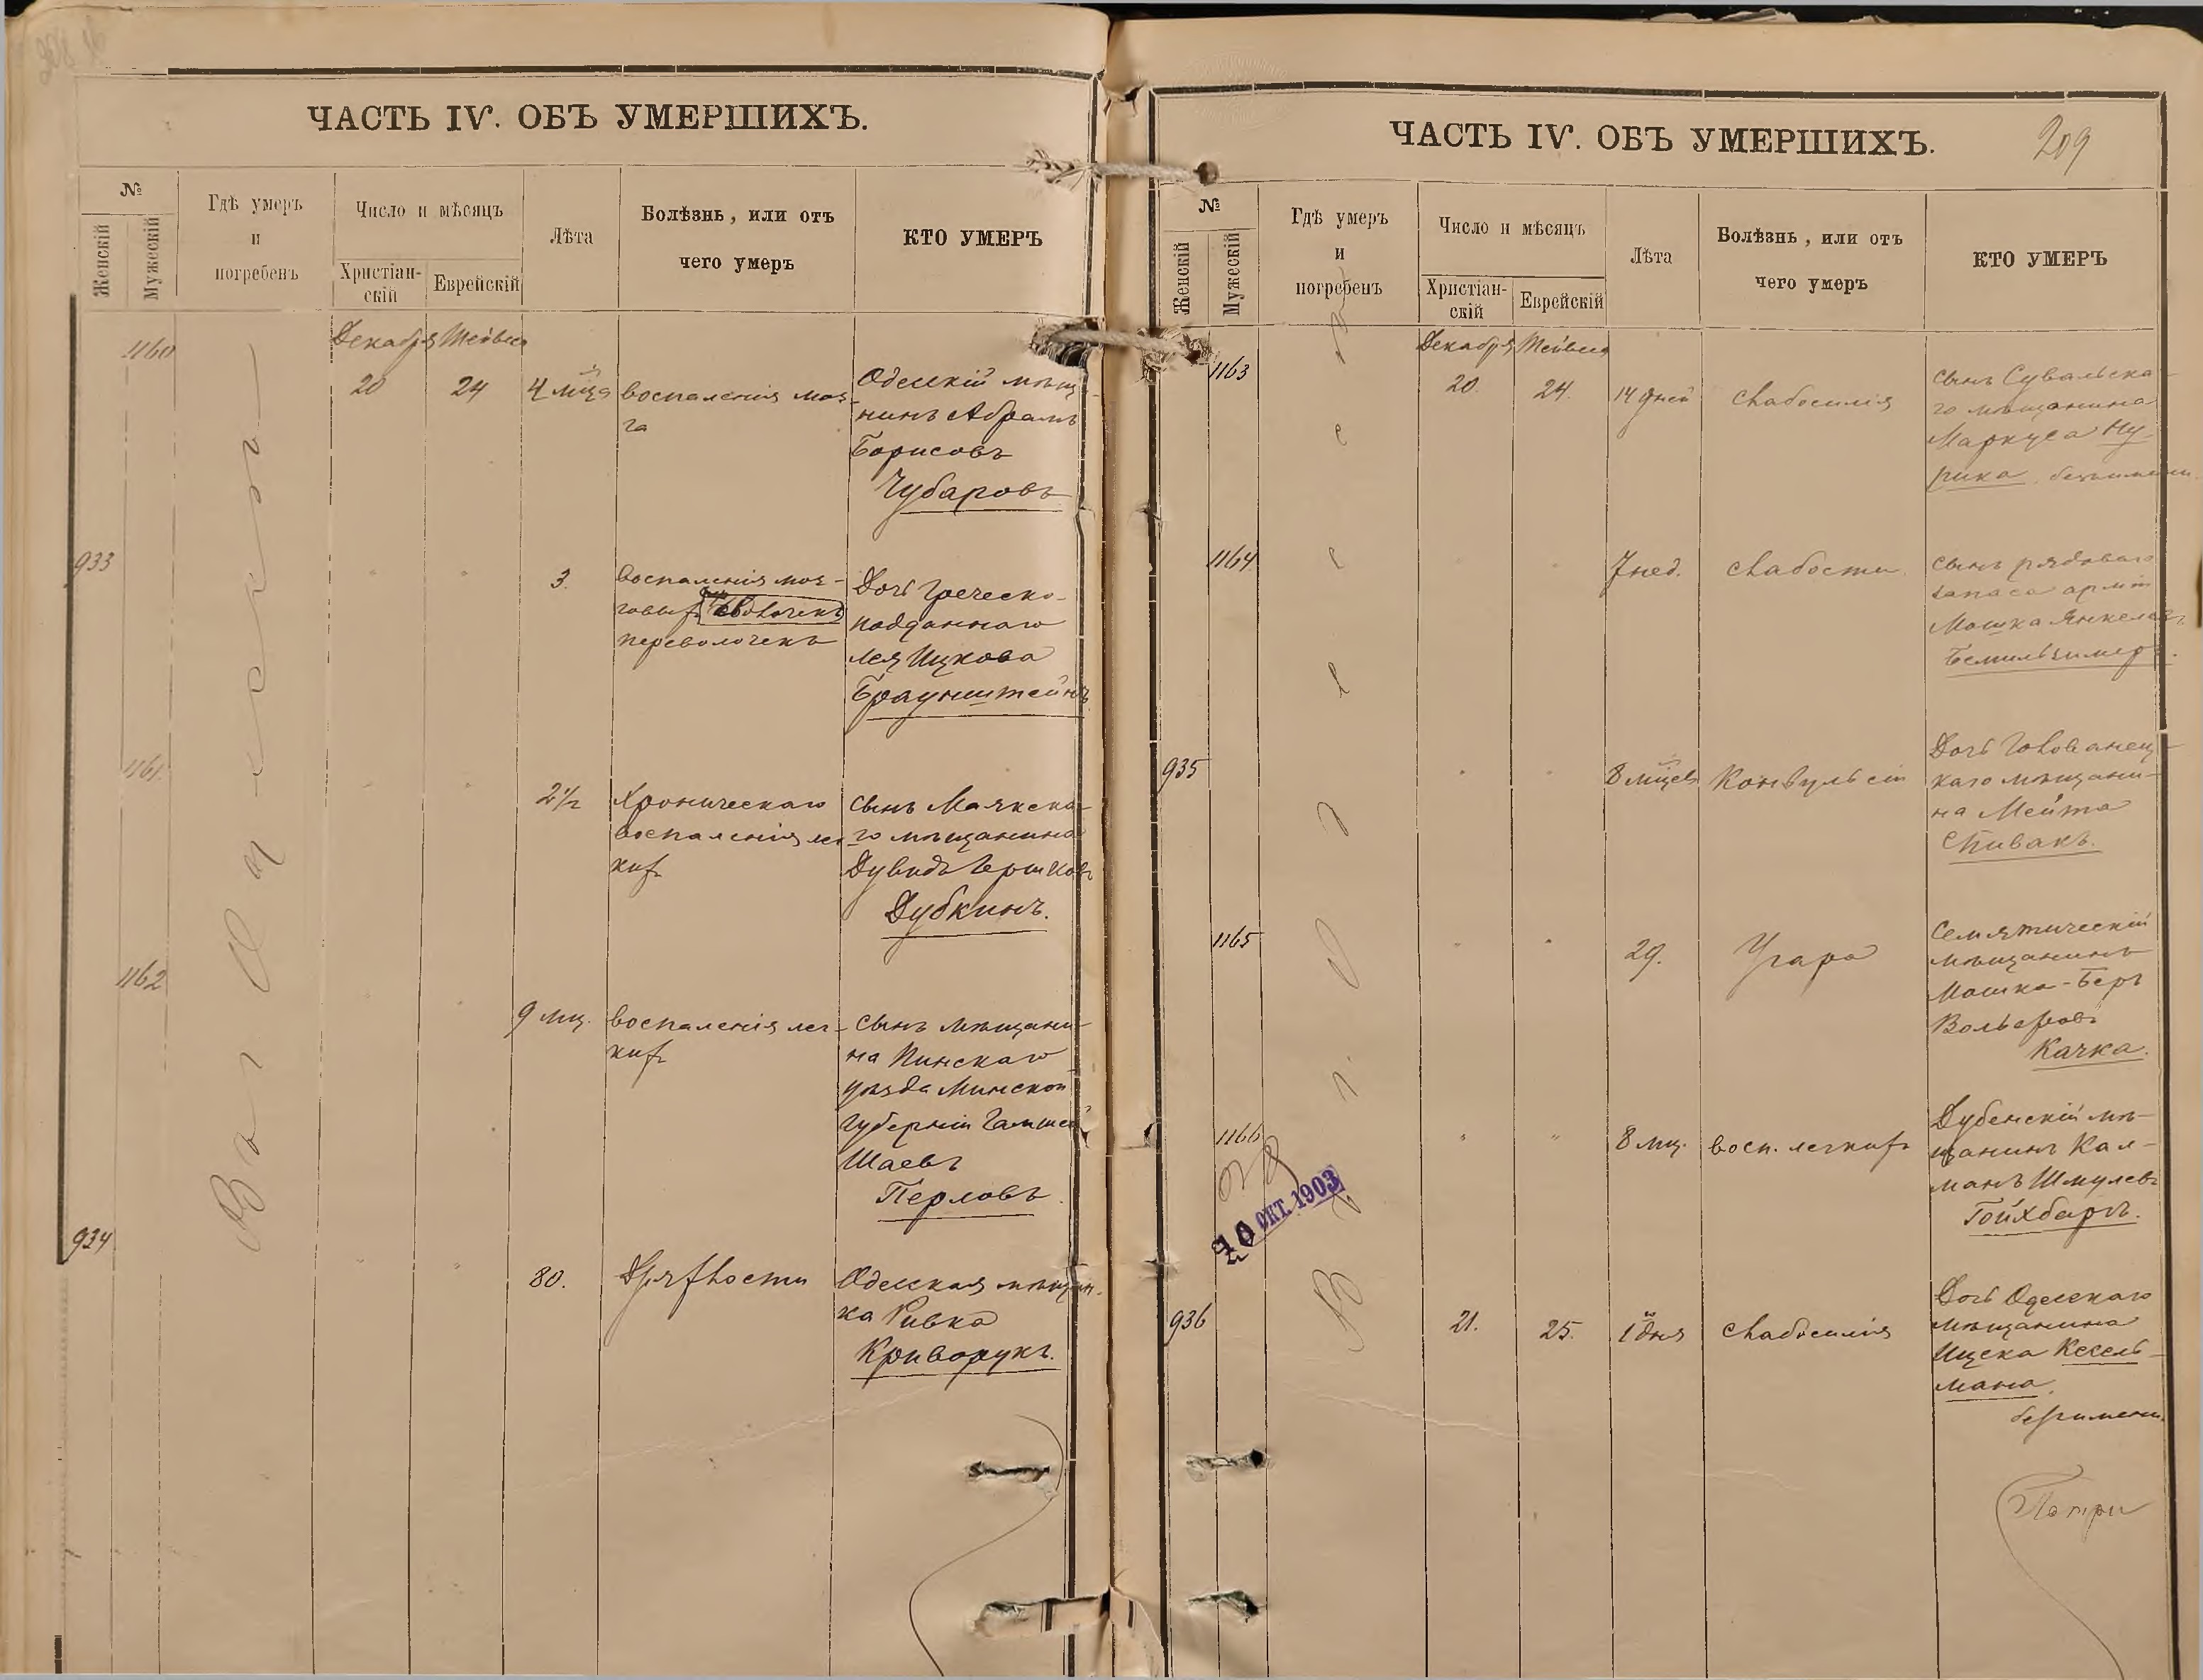 ЧАСТЬ IV. ОБЪ УМЕРШИХЪ.
№
Женскій
Мужескій
Гдѣ умеръ
и
погребенъ
Число и мѣсяцъ
Христіан-
скій
Еврейскій
Лѣта
Болѣзнь, или отъ
чего умеръ
КТО УМЕРЪ
Въ г. Одессѣ
Декабря
1160
20
24
воспаленія моз-
га
Одесскій мѣщ-
нинъ Абрамъ
Борисовъ
Чубаровъ
933
3.
воспаленія моз-
говыхъ
переволочекъ
Дочь Греческо-
подданнаго
Лея Ицкова
Браунштейнъ
1161
2½
Хроническаго
воспаленія лег
кихъ
сынъ Маякска-
го мѣщанина
Дувидъ Гершковъ
Дубкинъ.
1162
9 мц.
воспаленія лег-
кихъ
сынъ мѣщани-
на Пинскаго
уѣзда Минской
губерніи
Шаевъ
Перловъ.
934
80.
Дряхлости
Одесская мѣщан-
ка Ривка
Криворукъ.
ЧАСТЬ IV. ОБЪ УМЕРШИХЪ.
209
№
Женскій
Мужескій
Гдѣ умеръ
и
погребенъ
Число и мѣсяцъ
Христіан-
скій
Еврейскій
Лѣта
Болѣзнь, или отъ
чего умеръ
КТО УМЕРЪ
Въ г. Одессѣ
Декабря
1163
20.
24.
14 дней
слабосилія
сынъ Сувальска-
го мѣщанина
Маркуса Ну-
рика.
1164
7 нед.
слабости.
сынъ рядоваго
запаса арміи
Мошка Янкелевъ
935
Конвульсіи
Дочь Голованец-
каго мѣщани-
на Мейта
Спивакъ.
1165
29.
Угара
Семятическій
мѣщанинъ
Мошка-Беръ
Вольфовъ
Качка.
1166
8 мц.
восп. легкихъ
Дубенскій мѣ-
щанинъ Кал-
манъ Шмулевъ
Гойхбаргъ.
ОКТ. 1903
936
21.
25.
1 дня
слабосилія
Дочь Одесскаго
мѣщанина
Ицска Кесель-
мана.
безъимени.